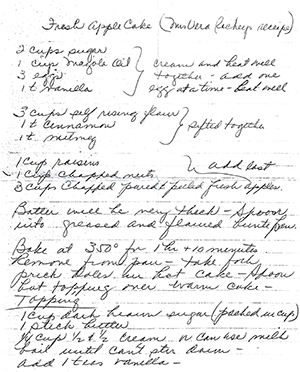 Fresh Apple Cake (Mrs Vera Racheys recipe)
2 cups sugar
1 cup Mazola Oil
3 eggs
1 t vanilla
cream and beat well
together - add one
egg at a time - beat well
3 cups self rising flour
1 t cinnamon
1 t nutmeg
sifted together
1 cup raisins
1 cup chopped nuts
3 cups chopped pared & peeled fresh apples.
add last
Batter will be very thick - Spoon
into greased and floured bundt pan.
Bake at 350° for 1 hr + 10 minutes
Remove from pan - take fork
prick holes in hot cake - Spoon
hot topping over warm cake -
Topping
1 cup dark brown sugar (packed in cup)
1 stick butter
1/4 cup 1/2 & 1/2 cream or can use milk
boil until can't stir down -
add 1 teas vanilla -